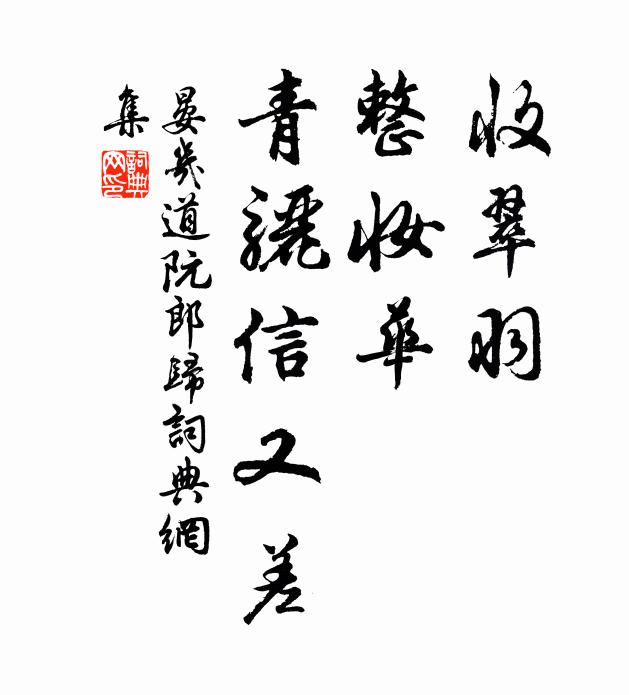 收翠羽
整妝華
青驪信又差
晏幾道阮郎歸詞典網
集
詞典
网印